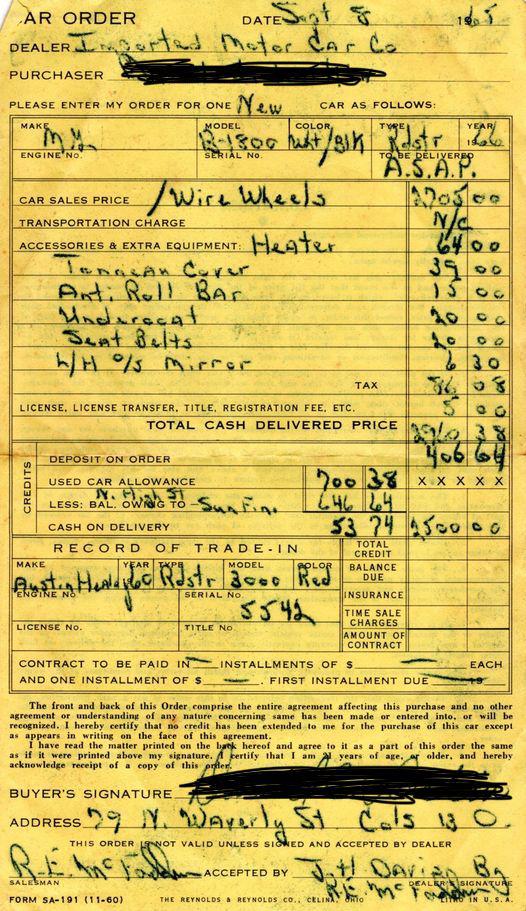 CAR ORDER DATE Sept 8 1965
DEALER Imported Motor Car Co
PURCHASER
PLEASE ENTER MY ORDER FOR ONE New CAR AS FOLLOWS:
MAKE MODEL COLOR TYPE YEAR
MG B-1800 Wht/Blk Rdstr 1966
ENGINE No. SERIAL No. TO BE DELIVERED
A.S.A.P.
CAR SALES PRICE /Wire Wheels 2705 00
TRANSPORTATION CHARGE N/C
ACCESSORIES & EXTRA EQUIPMENT: Heater 64 00
Tonneau Cover 39 00
Anti Roll Bar 15 00
Undercoat 20 00
Seat Belts 20 00
L/H O/S Mirror 6 30
TAX 86 08
LICENSE, LICENSE TRANSFER, TITLE, REGISTRATION FEE, ETC. 5 00
TOTAL CASH DELIVERED PRICE 2960 38
CREDITS
DEPOSIT ON ORDER 406 64
USED CAR ALLOWANCE 700 38 X X X X X
N. High St
LESS: BAL. OWING TO Sun Fin. 646 64
CASH ON DELIVERY 53 74 2500 00
RECORD OF TRADE-IN TOTAL CREDIT
MAKE YEAR TYPE MODEL COLOR BALANCE DUE
Austin Healey 60 Rdstr 3000 Red
ENGINE No. SERIAL No. INSURANCE
5542
TIME SALE CHARGES
LICENSE No. TITLE No. AMOUNT OF CONTRACT
CONTRACT TO BE PAID IN — INSTALLMENTS OF $ — EACH
AND ONE INSTALLMENT OF $ —. FIRST INSTALLMENT DUE — 19
The front and back of this Order comprise the entire agreement affecting this purchase and no other
agreement or understanding of any nature concerning same has been made or entered into, or will be
recognized. I hereby certify that no credit has been extended to me for the purchase of this car except
as appears in writing on the face of this agreement.
I have read the matter printed on the back hereof and agree to it as a part of this order the same
as if it were printed above my signature. I certify that I am 21 years of age, or older, and hereby
acknowledge receipt of a copy of this order.
BUYER'S SIGNATURE
ADDRESS 79 N. Waverly St Cols 13 O.
THIS ORDER IS NOT VALID UNLESS SIGNED AND ACCEPTED BY DEALER
R.E. McFadden ACCEPTED BY
R.E. McFadden
SALESMAN DEALER'S SIGNATURE
FORM SA-191 (11-60) THE REYNOLDS & REYNOLDS CO., CELINA, OHIO LITHO IN U.S.A.